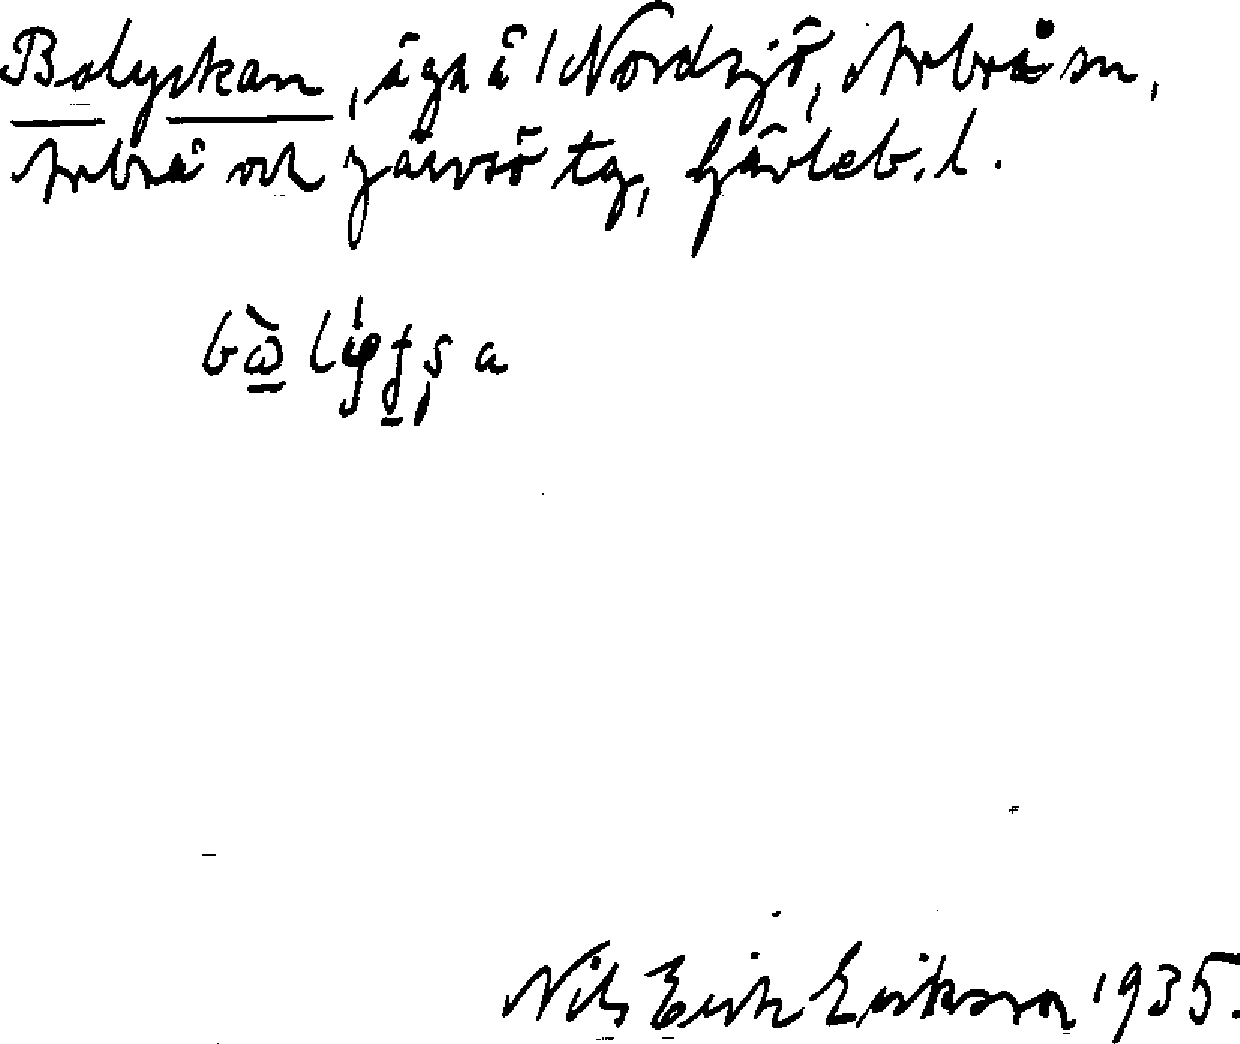 Bolyckan, äga å 1 Nordsjö, Arbrå sn,
Arbrå och Järvsö tg, Gävleb. l.
Nils Erik Eriksson 1935.